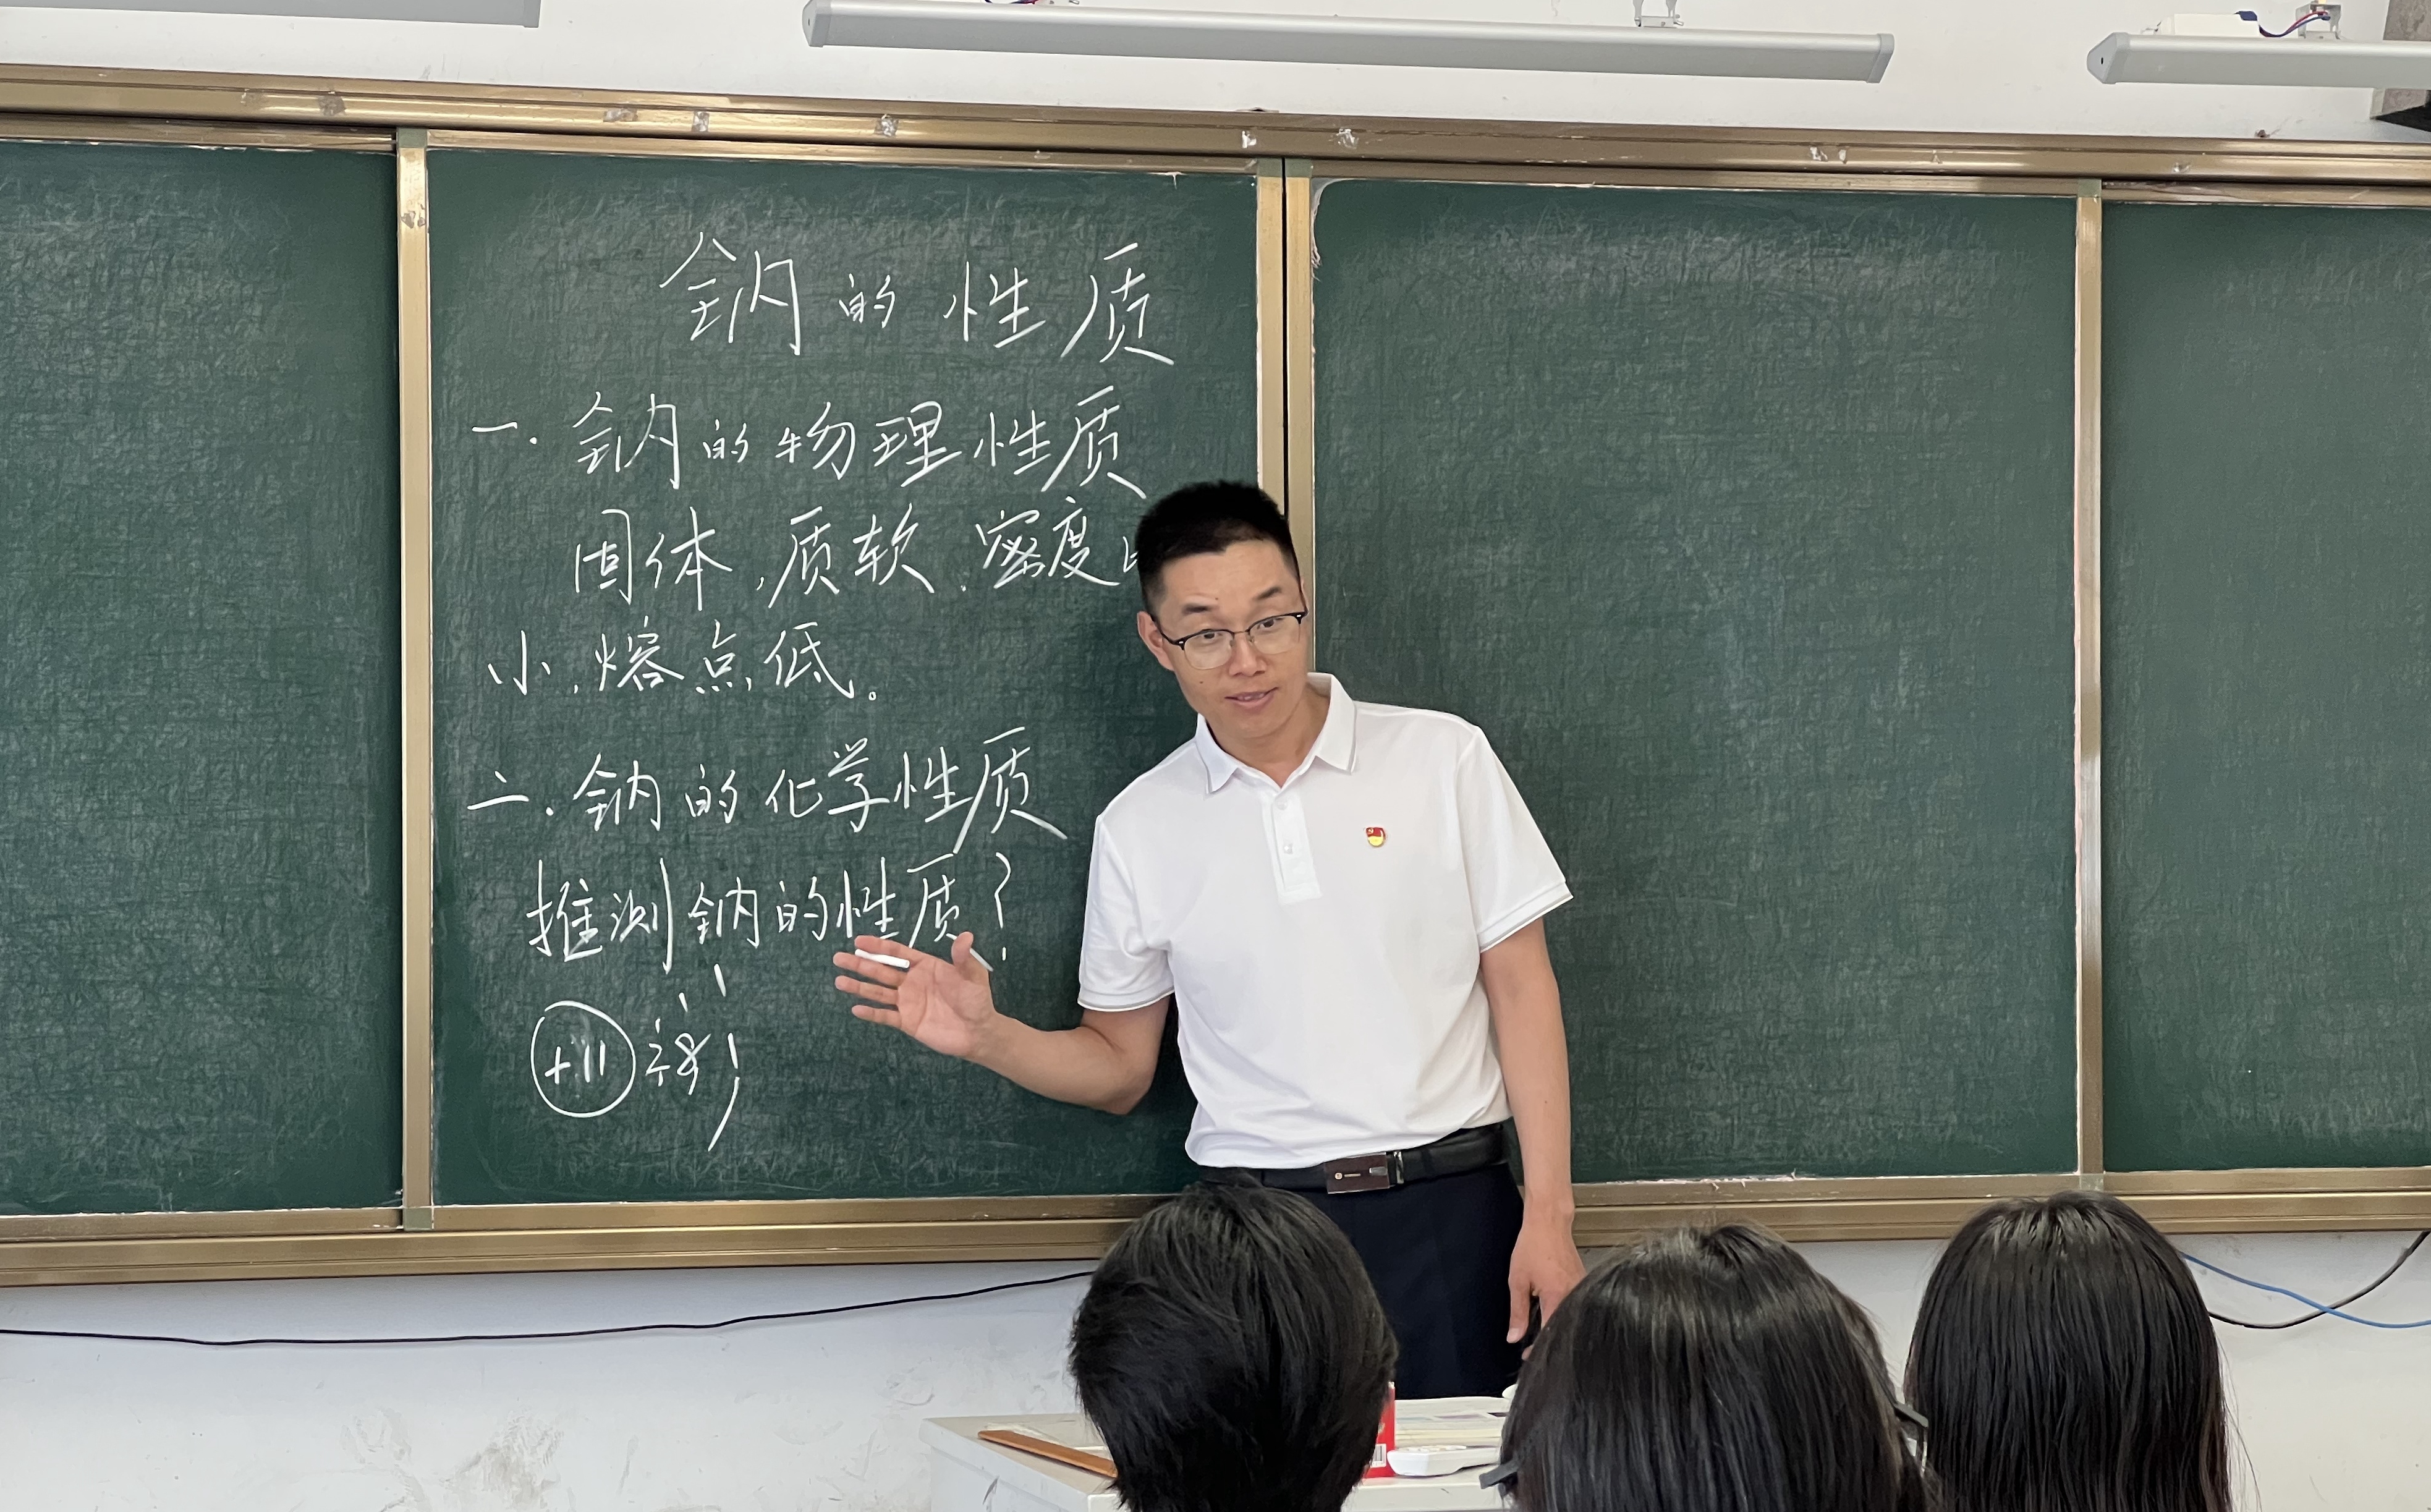 钠的性质
一.钠的物理性质
固体,质软.密度
小,熔点低。
二.钠的化学性质
推测钠的性质?
+11 2 8 1